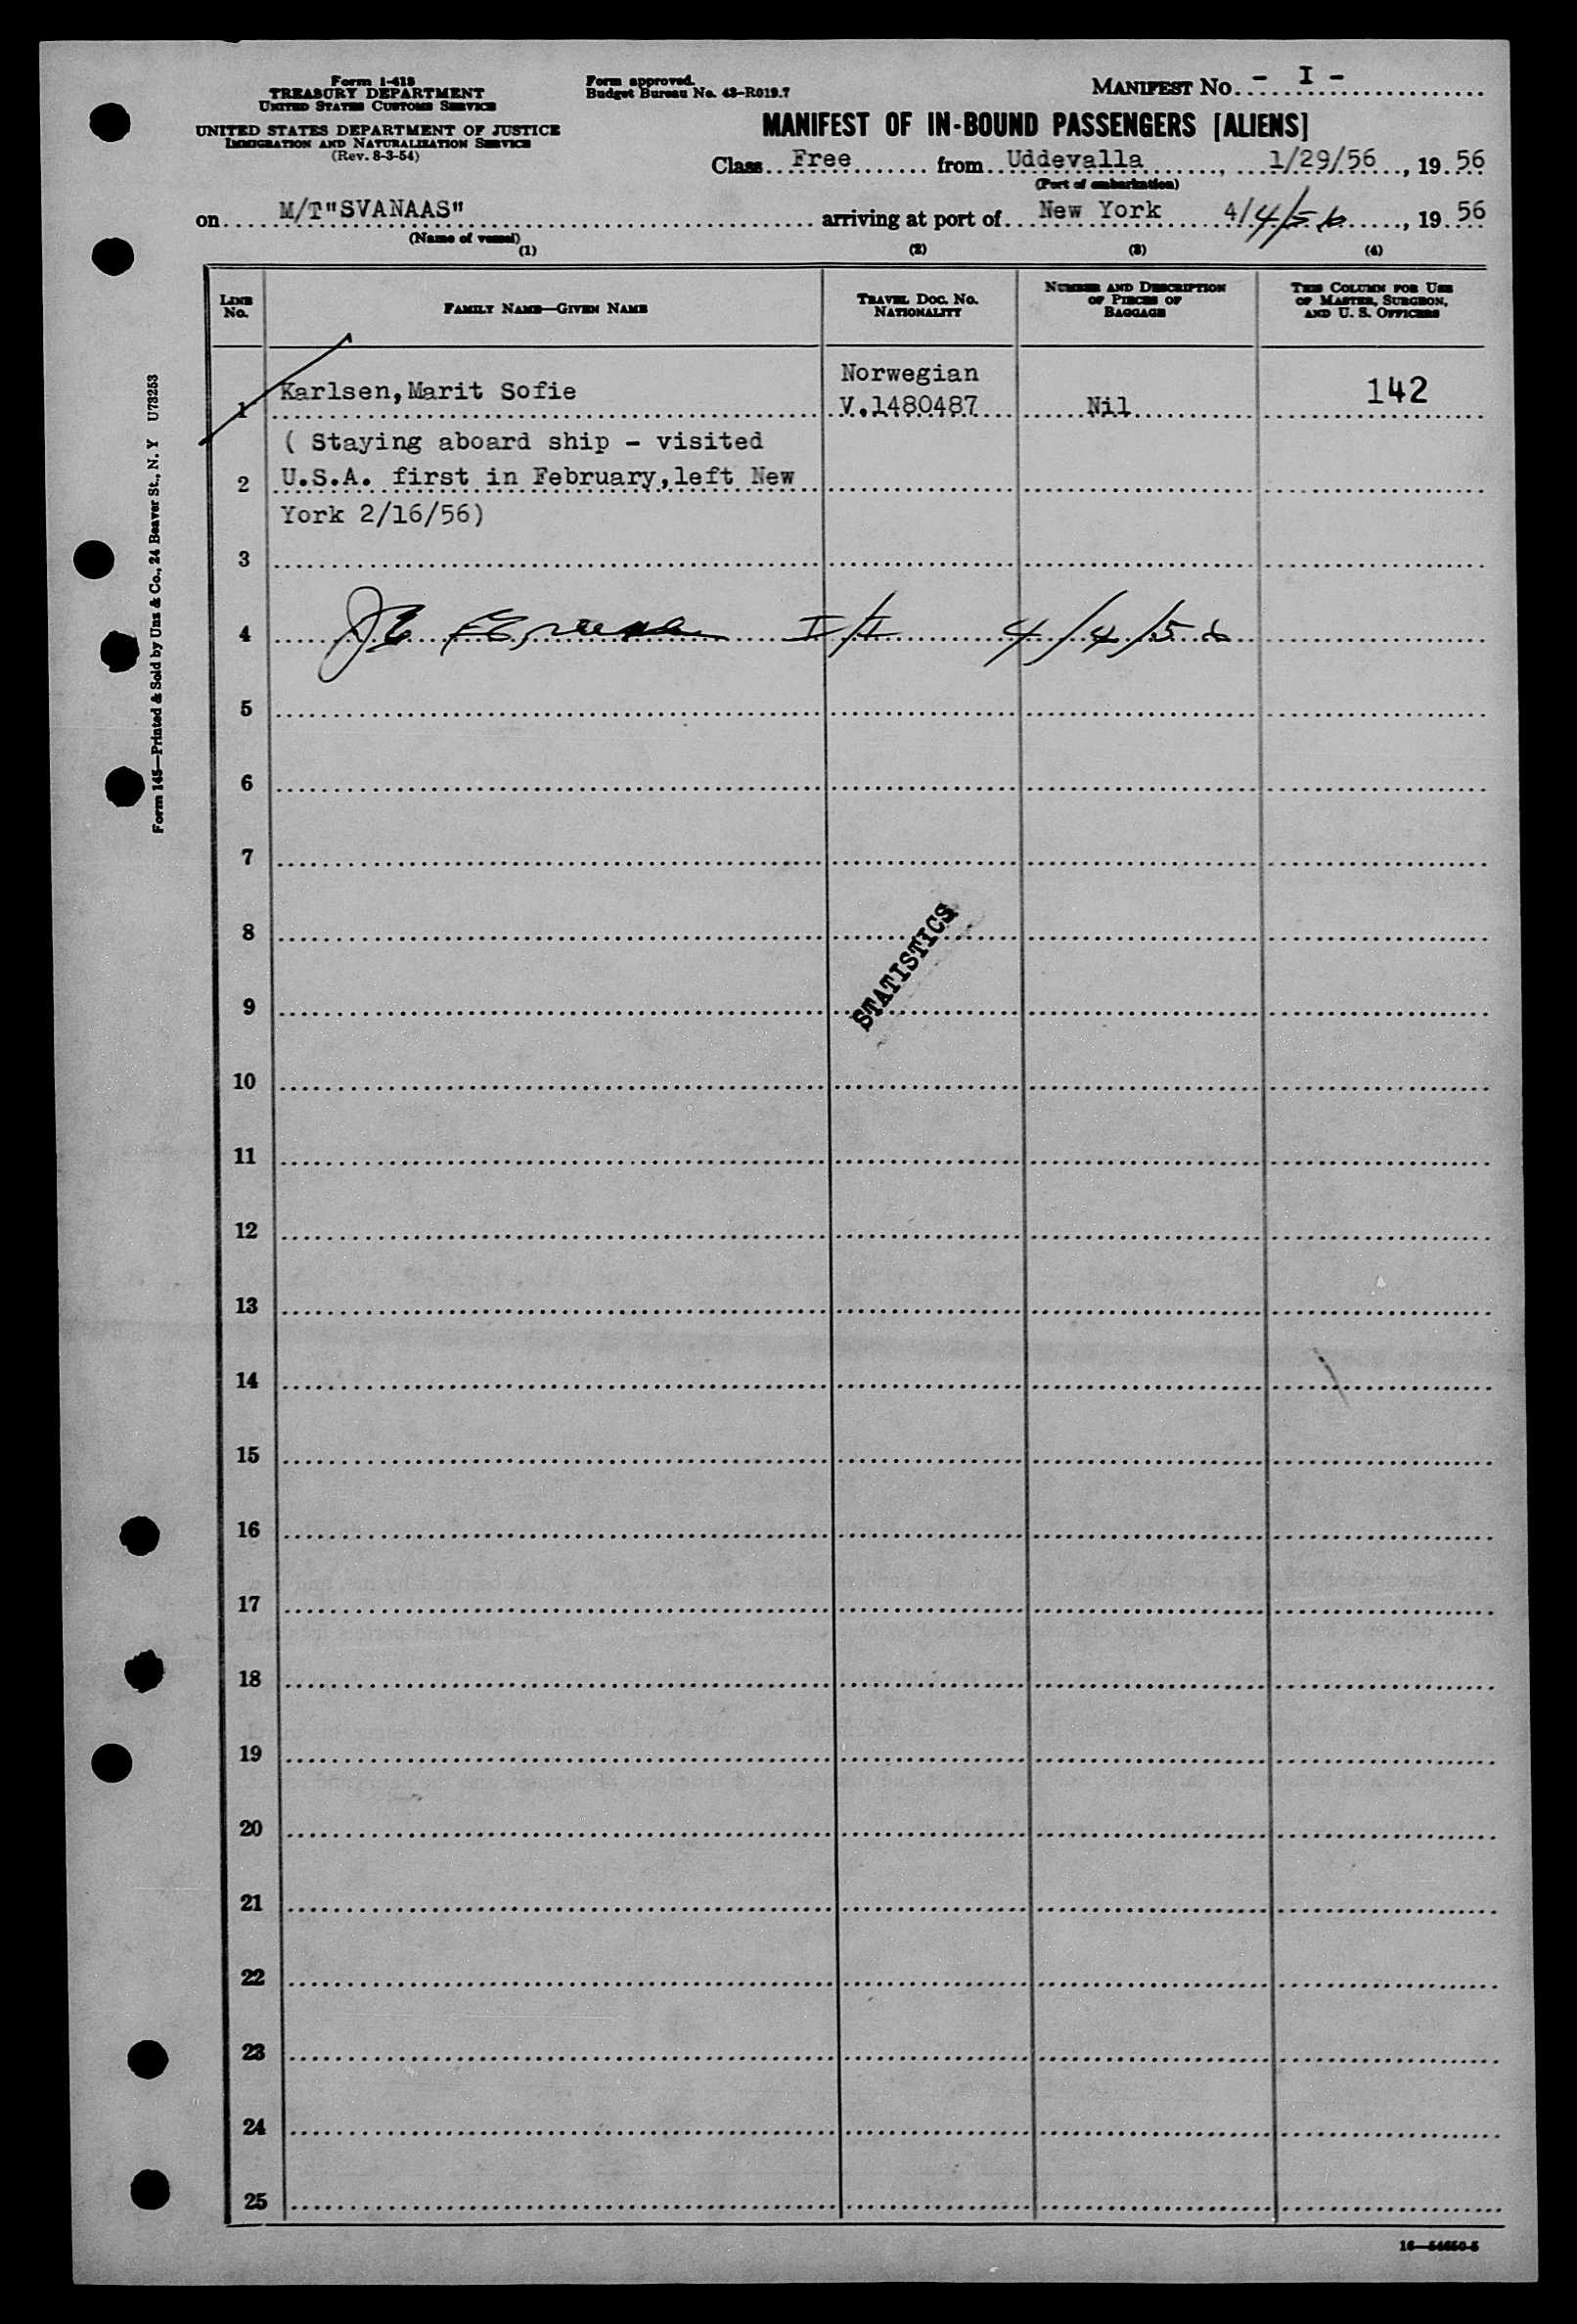 Form I-418
TREASURY DEPARTMENT
UNITED STATES CUSTOMS SERVICE
UNITED STATES DEPARTMENT OF JUSTICE
IMMIGRATION AND NATURALIZATION SERVICE
(Rev. 8-3-54)
Form approved.
Budget Bureau No. 43-R019.7
MANIFEST NO. - I -
MANIFEST OF IN-BOUND PASSENGERS [ALIENS]
Class Free from Uddevalla, 1/29/56, 19 56
(Port of embarkation)
on M/T"SVANAAS" arriving at port of New York 4/4/56, 19 56
(Name of vessel)
(1) (2) (3) (4)
LINE No. FAMILY NAME—GIVEN NAME TRAVEL DOC. NO. NATIONALITY NUMBER AND DESCRIPTION OF PIECES OF BAGGAGE THIS COLUMN FOR USE OF MASTER, SURGEON, AND U. S. OFFICERS
Norwegian
1 Karlsen,Marit Sofie V.1480487 Nil 142
( Staying aboard ship - visited
2 U.S.A. first in February,left New
York 2/16/56)
3
4 I/I 4/4/56
5
6
7
8
STATISTICS
9
10
11
12
13
14
15
16
17
18
19
20
21
22
23
24
25
Form 145—Printed & Sold by Unz & Co., 24 Beaver St., N. Y U73253
16—54650-5